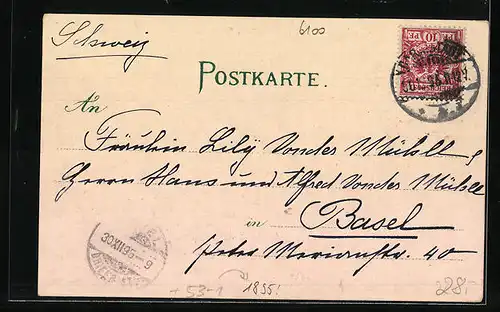 6100
Schweiz
10 PF 10
POSTKARTE.
An
Fräulein Lily Vonder Mühll &
Herrn Hans und Alfred Vonder Mühll
in Basel
Peter Merianstr. 40
30.XII.95-9
+ 53-1 1895!
228.-